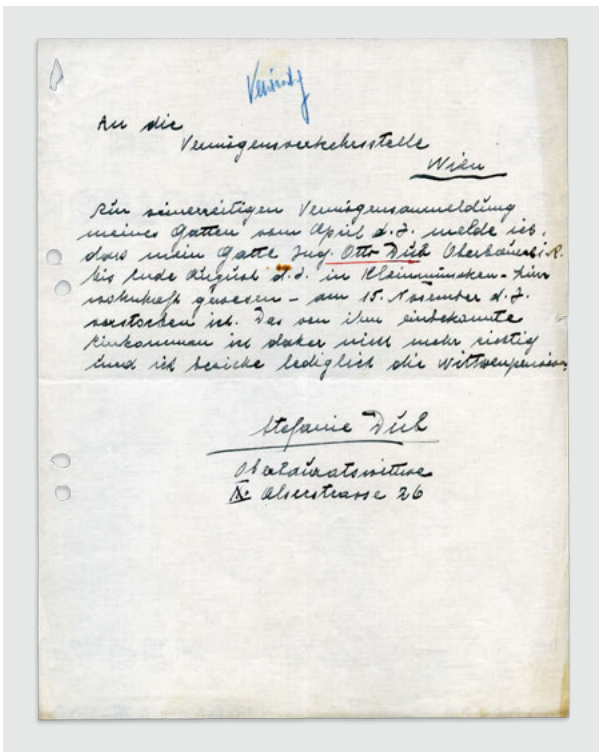 An die
Vermögensverkehrsstelle
Wien
Zur seinerzeitigen Vermögensanmeldung
meines Gatten vom April d. J. melde ich,
dass mein Gatte Ing. Otto Düb Oberbaurat i. R.
bis Ende August d. J. in Kleinmünchen - Linz
wohnhaft gewesen - am 15. November d. J.
verstorben ist. Das von ihm einbekannte
Einkommen ist daher nicht mehr richtig
und ich beziehe lediglich die Witwenpension
Stefanie Düb
Oberbauratswitwe
IX. Alserstrasse 26